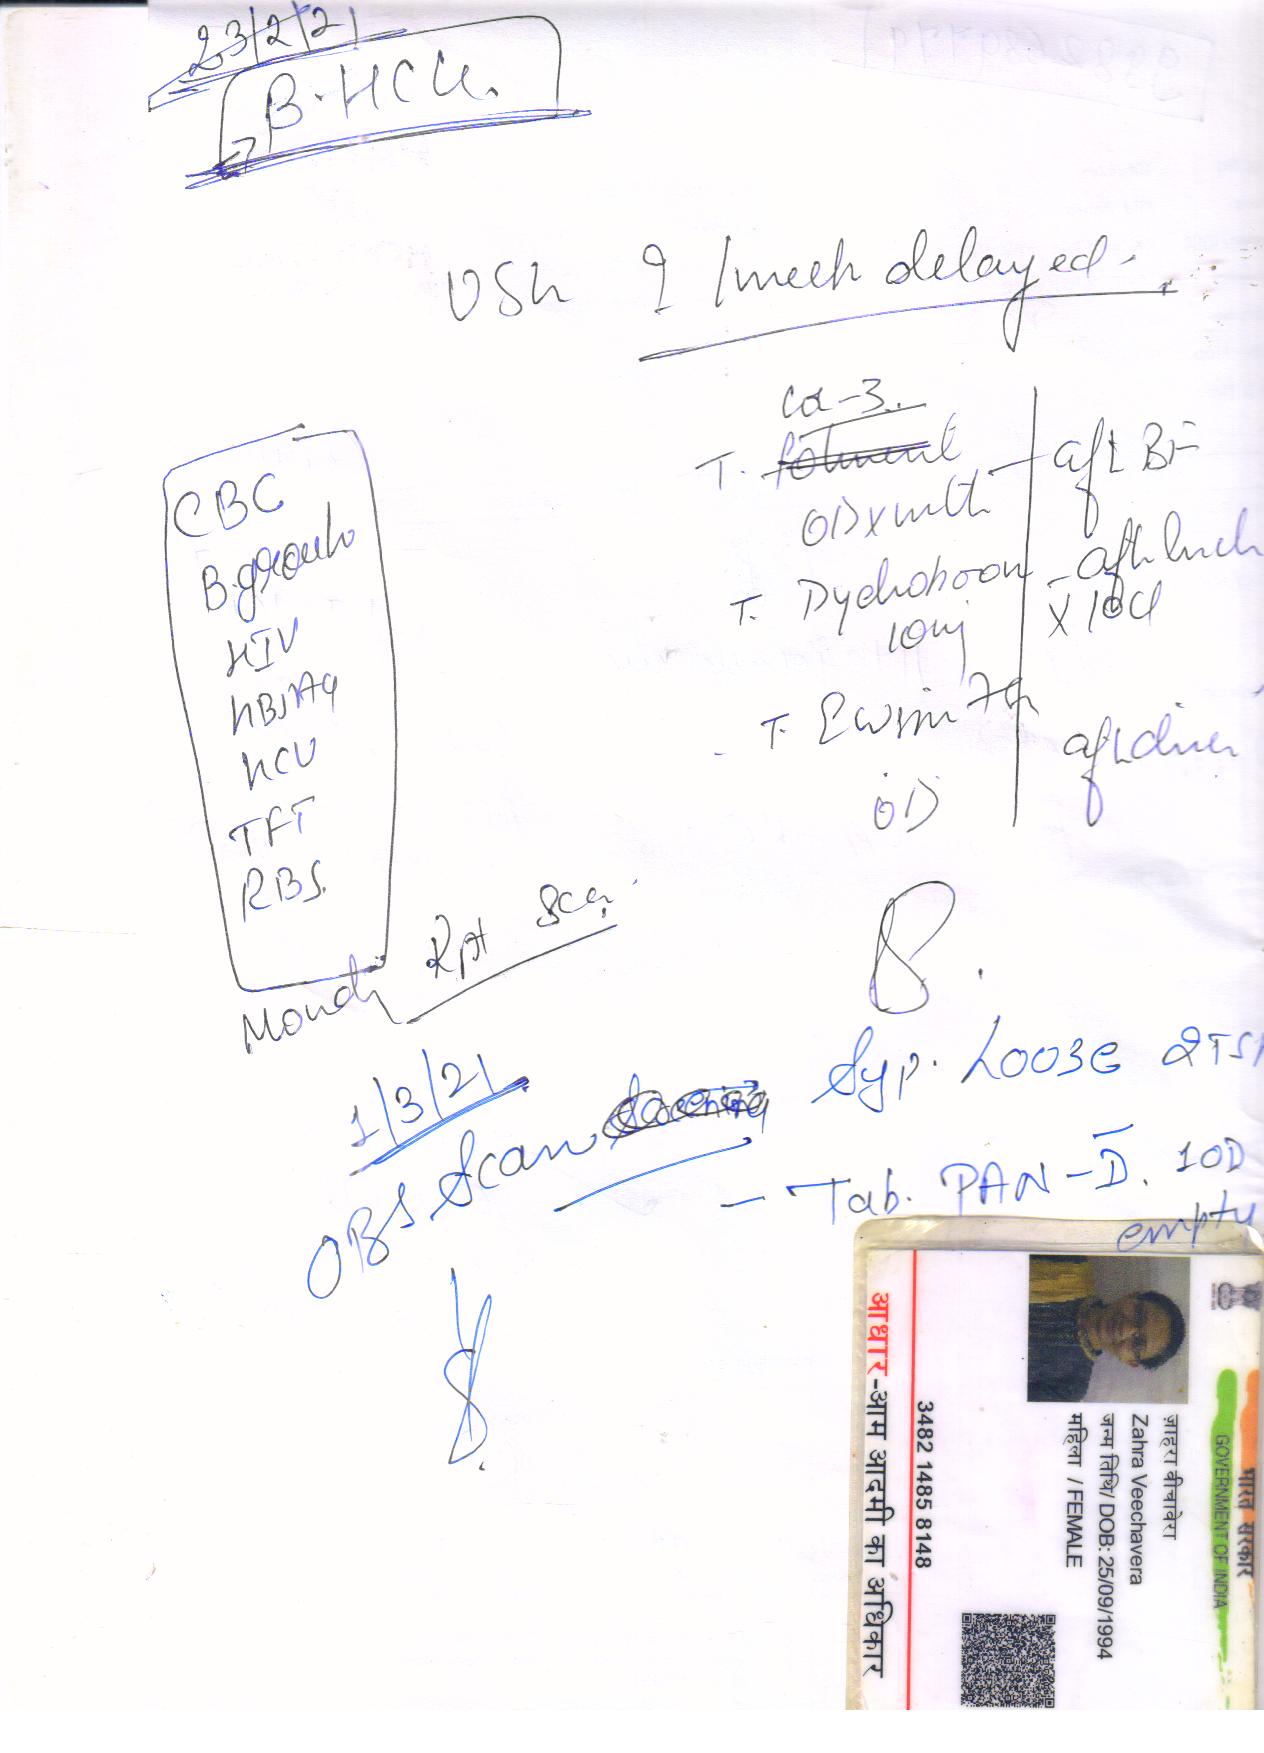 23/2/21
B.HCG.
USG
1 week delayed.
CBC
B.group
HIV
HBsAg
HCV
TFT
RBS.
Cα-3..
T.
OD x mth
aft BF
T. Dydroboon
10mg
aft lunch
x 10d
T. Ewsin
OD
aft diner
Rpt Scan
Monday
1/3/21
OBS Scan
Syp. LOOSE 2TS
- Tab. PAN-D. 10D
empty
भारत सरकार
GOVERNMENT OF INDIA
ज़ाहरा वीचावेरा
Zahra Veechavera
जन्म तिथि/ DOB: 25/09/1994
महिला / FEMALE
3482 1485 8148
आधार-आम आदमी का अधिकार